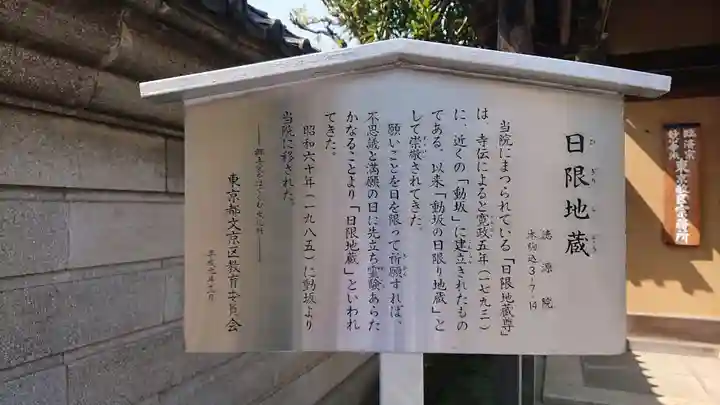 日限地蔵
ひぎりじぞう
徳源院
本駒込3-7-14
当院にまつられている「日限地蔵尊」
は、寺伝によると寛政五年(一七九三)
に、近くの「動坂」に建立されたもの
である。以来「動坂の日限り地蔵」と
して崇敬されてきた。
願いごとを日を限って祈願すれば、
不思議と満願の日に先立ち霊験あらた
かなることより「日限地蔵」といわれ
てきた。
昭和六十年(一九八五)に動坂より
当院に移された。
―郷土愛をはぐくむ文化財―
東京都文京区教育委員会
臨済宗
妙心寺派